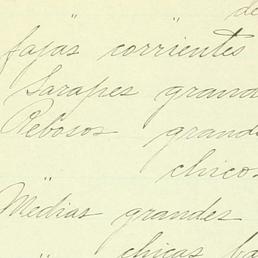 de
" "
fajas corrientes
Sarapes grand
Rebosos grande
chicos
Medias grandes
" chicas ba